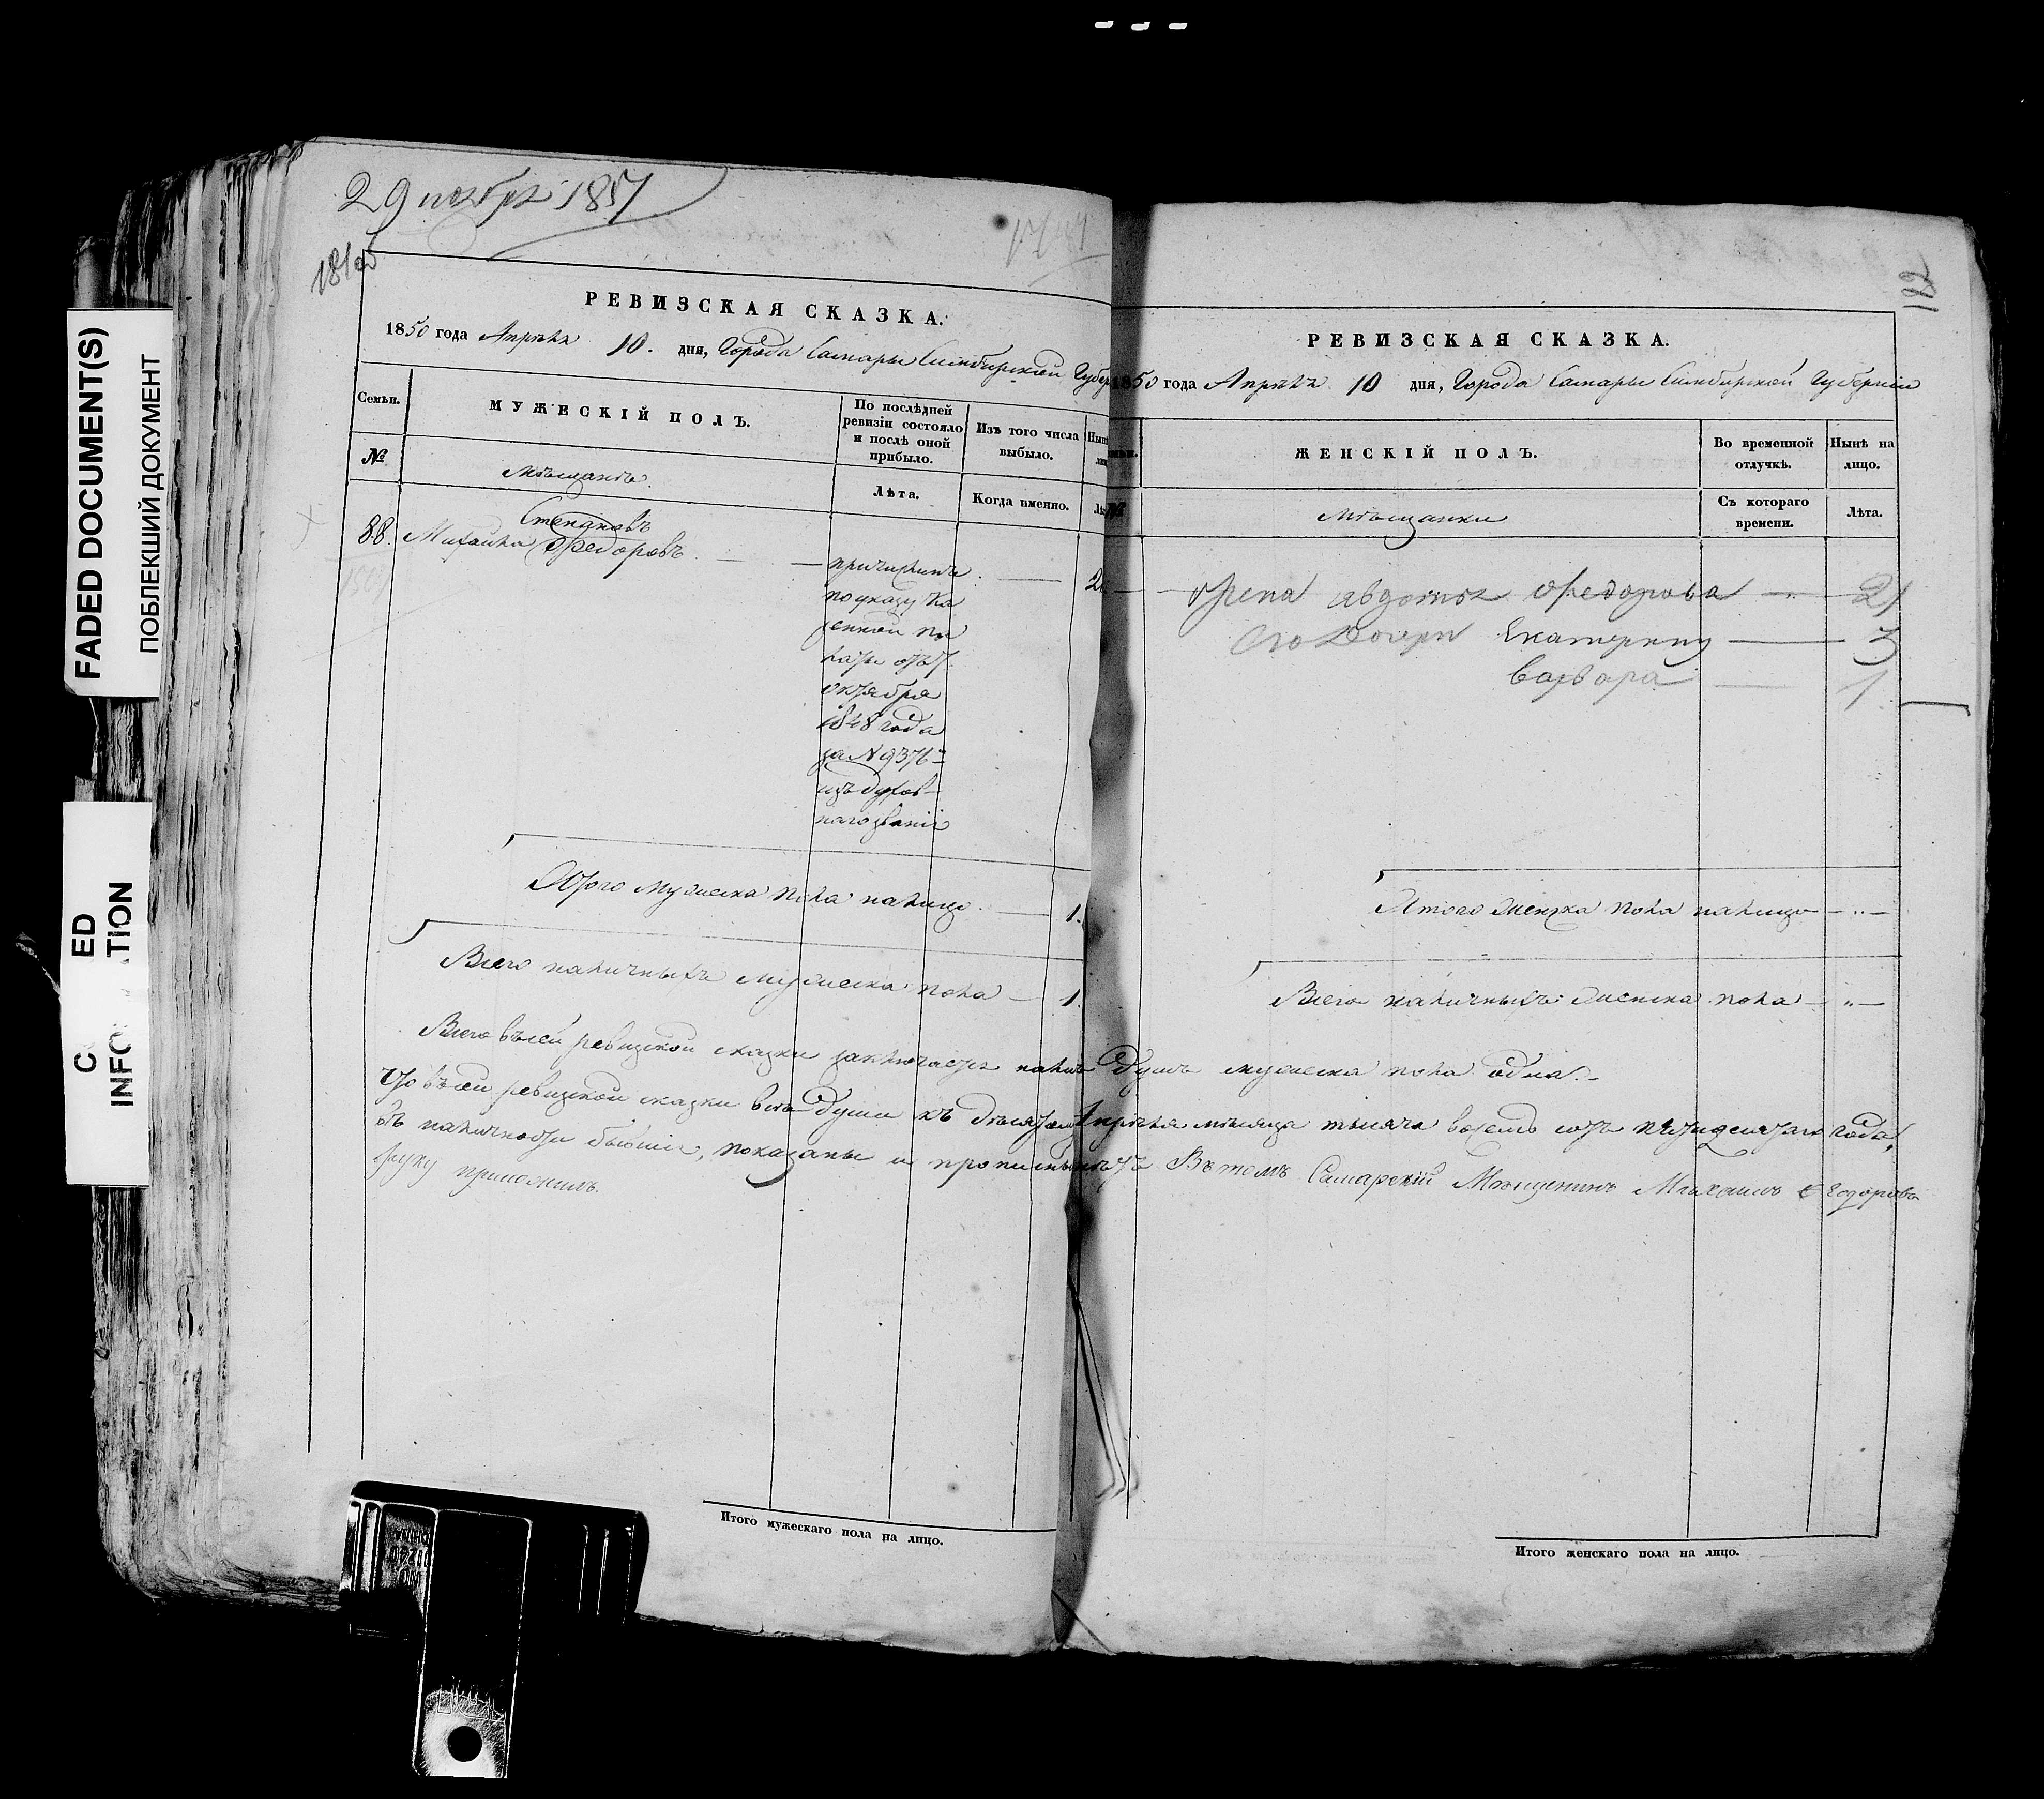 29 ноября 1857
РЕВИЗСКАЯ СКАЗКА.
1850 года Апрѣля 10. дня, Города Самары Симбирской Губер
Семьи.
МУЖЕСКІЙ ПОЛЪ.
По послѣдней ревизіи состояло и послѣ оной прибыло.
Изъ того числа выбыло.
№
Мѣщанъ.
Лѣта.
Когда именно.
Степановъ
88. Михайла Федоровъ.
причисленъ
по указу Ка
зенной па
латы отъ 7.
октября
1848 года
за № 9376
изъ духов-
наго званія
Итого мужеска пола налицо. 1.
Всего наличныхъ мужеска пола 1.
182
РЕВИЗСКАЯ СКАЗКА.
1850 года Апрѣля 10 дня, Города Самары Симбирской Губерніи
ЖЕНСКІЙ ПОЛЪ.
Во временной отлучкѣ.
Нынѣ на лицо.
№
Мѣщанки
Съ котораго времени.
Лѣта.
Жена Авдотья Федорова 21
Его дочери Екатерина 3
Варвара 1
Итого женска пола налицо - " -
Всего наличныхъ женска пола - " -
Всего въ сей ревизской сказки заключается налич душъ мужеска пола одна.
Что въ сей ревизской сказки всѣ души къ десятому Апрѣля мѣсяца тысяча восемь сотъ пятидесятаго года,
въ наличности бывшіе, показаны и прописныхъ нѣтъ Въ томъ Самарскій Мѣщенинъ Михаилъ Федоровъ
руку приложилъ.
Итого мужескаго пола на лицо.
Итого женскаго пола на лицо.
FADED DOCUMENT(S)
ПОБЛЕКШИЙ ДОКУМЕНТ